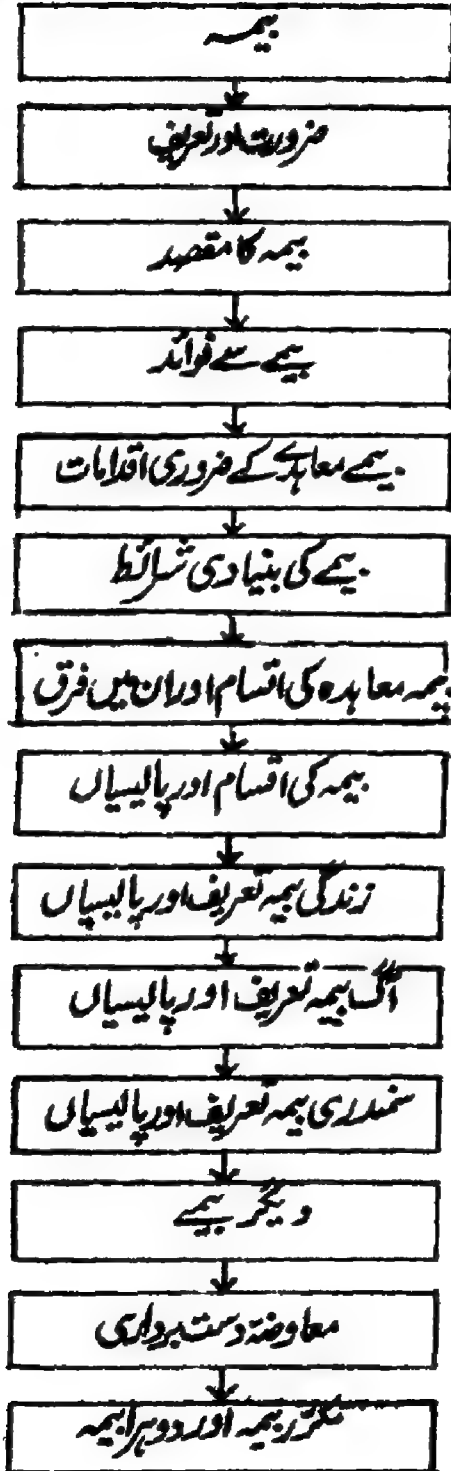 بیمہ
ضرورت اور تعریف
بیمہ کا مقصد
بیمے سے فوائد
بیمے معاہدے کے ضروری اقدامات
بیمے کی بنیادی شرائط
بیمہ معاہدہ کی اقسام اور ان میں فرق
بیمہ کی اقسام اور پالیسیاں
زندگی بیمہ تعریف اور پالیسیاں
آگ بیمہ تعریف اور پالیسیاں
سمندری بیمہ تعریف اور پالیسیاں
دیگر بیمے
معاوضہ دست برداری
مکرّر بیمہ اور دوہرا بیمہ